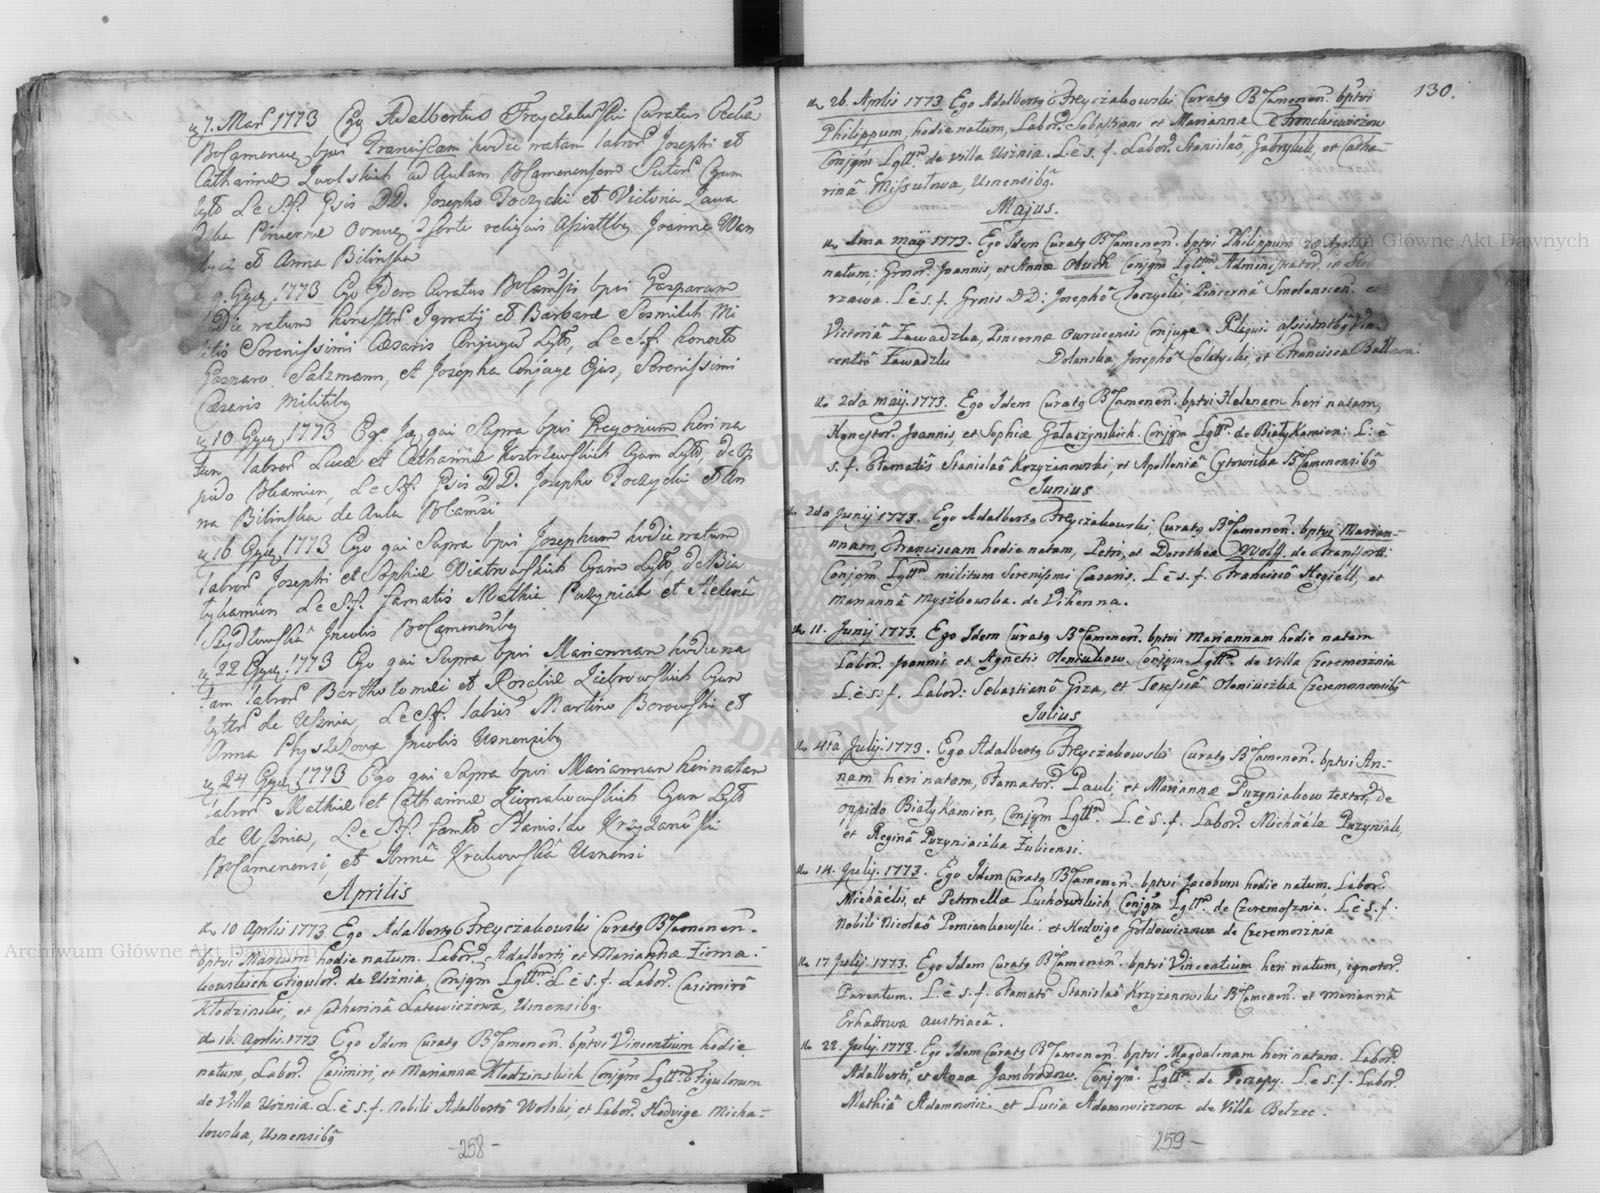 7. Mar. 1773 Ego Adalbertus Freyczakowski Curatus Ecclae
Bocamenen bpvi Franciscam hodie natam labor Josephi et
Catharinae ad Aulam Bocamenensem Sutor Cgum
Lgtt LeSf. Gsis DD. Josepho Poczycki et Victoria Zawa
religuis assisttbg Joanne Wan
et Anna Bilinska
9. Ejusd 1773 Ego Idem Curatus bpvi Gasparum
hodie natum honesttor Ignatij et Barbarae Sosmilch Mi
litis Serenissimi Caesaris Conjugum Lgtt, LeSf honesto
Gasparo Salzmann, et Josepha Conjuge Ejus, Serenissimi
Caesaris Militibg
10 Ejusd 1773 Ego qui Supra bpvi Gregorium heri na
tum labor Lucae et Catharinae Kostrzewskich Cgum Lgtt, de Op
pido Bkamien, LeSf Gsis DD. Josepho Poczycki et An
na Bilinska de Aula
16 Ejusd 1773 Ego qui Supra bpvi Josephum hodie natum
labor Josephi et Sophiae Wiatrowskich Cgum Lgtt, de Bia
lykamien LeSf. famatis Mathia Puzyniak et Helenâ
Szydlowskâ Incolis Bocamenenbg
22 Ejusd 1773 Ego qui Supra bpvi Mariannam hodie na
tam labor Bartholomei et Rosaliae Cgum
Lgttor de Usznia, LeSf. labris Martino Borowski et
Anna Incolis Usnensibg
24 Ejusd 1773 Ego qui Supra bpvi Mariannam heri natam
labor Mathiae et Catharinae Ziomakowskich Cgum Lgtt
de Usznia, LeSf. famto Stanislao Krzyzanowski
Bocamenensi, et Annâ Krukowskâ Usnensi
Aprilis
d. 10 Aprlis 1773 Ego Adalbertg Freyczakowski Curatg BoCamenen.
bptvi Marcum hodie natum. Labor. Adalberti, et Mariannae Zioma=
kowskich Figulor. de Usznia Conjgm Lgttm. L è s. f. Labor. Casimirô
Kłodzinski, et Catharinâ Latewiczowa, Usnensibg.
d. 16. Aprlis. 1773 Ego Idem Curatg BoCamenen. bptvi Vincentium hodie
natum, Labor. Casimiri, et Mariannae Kłodzinskich Conjgm Lgttm Figulorum
de Villa Usznia. L è s. f. Nobili Adalbertô Wolski, et Labor. Hedvige Micha=
lowska, Usnensibg
-258-
130.
d. 26. Aprlis 1773 Ego Adalbertg Freyczakowski Curatg BoCamenen. bptvi
Philippum, hodie natum, Labor. Sebastiani et Mariannae
Conjgm Lgttm. de Villa Usznia. L è s. f. Labor. Stanislaô, Gabryluk, et Catha=
rinâ Missułowa, Usnensibg.
Majus.
d. 1ma maij 1773. Ego Idem Curatg BoCamenen. bptvi Philippum
natum; Gener. Joannis, et Annae Obuch Conjgm Lgttm Administrator. in
rzawa. L è s. f. Gensis DD: Josephô Poczycki, Pincernâ Smolenscen. e
Victoriâ Zawadzka, Pincernae Owrucensis Conjuge. Reliquis assistntbg Vin=
centiô Zawadzki Dolanska, Josephô et Francisca
d. 2da maij. 1773. Ego Idem Curatg BoCamenen. bptvi Helenam heri natam,
Honestor. Joannis, et Sophiae Gałaszynskich. Conjgm Lgttm. de Białykamien: L: è
s. f. Famatis Stanislaô Krzyżanowski, et Apolloniâ Cytowicka BoCamenensibg
Iunius
d. 2da Junij 1773. Ego Adalbertg Freyczakowski, Curatg BoCamenen. bptvi Marian=
nam, Franciscam hodie natam, Petri, et Dorothea Wolf. de
Conjgm Lgttm. militum Serenissimi Caesaris. L è s. f. Franciscô et
Mariannâ Myszkowska. de Vihenna.
d. 11. Junij 1773. Ego Idem Curatg BoCamenen. bptvi Mariannam hodie natam
Labor. Joannis et Agnetis Oleniukow. Conjgm Lgttm. de villa Czeremosznia
L è s. f. Labor: Sebastianô Giza, et Teressiâ Oleniuczka Czeremonensibg
Iulius
d. 4ta Julij. 1773. Ego Adalbertg Freyczakowski Curatg BoCamenen. bptvi An=
nam heri natam, Famator. Pauli, et Mariannae Puzyniakow textor, de
oppido Białykamien, Conjgm Lgttm. L è s. f. Labor. Michaele Puzyniak,
et Reginâ Puzyniaczka Zulicensi.
d. 14. Julij. 1773. Ego Idem Curatg BoCamenen. bptvi Jacobum hodie natum. Labor.
Michaëlis, et Petronellae Luchowskich, Conjgm Lgttm. de Czeremosznia. L è s. f.
Nobili Nicolaô Pomiankowski. et Hedvige Gołdowiczowa de Czeremosznia
d. 17 Julij. 1773. Ego Idem Curatg BoCamenen. bptvi Vincentium heri natum, ignotor.
Parentum. L è s. f. Famatô Stanislaô Krzyżanowski BoCamenen. et Mariannâ
Erhattowa Austriacâ.
d. 22. Julij. 1773. Ego Idem Curatg BoCamenen. bptvi Magdalenam heri natam. Labor.
Adalberti, et Annae Jambrozow. Conjgm. Lgttm. de Poczapy. L e s. f. Labor.
Mathiâ Adamowicz et Lucia Adamowiczowa de Villa Bełzec.
-259-
Archiwum Główne Akt Dawnych
Archiwum Główne Akt Dawnych